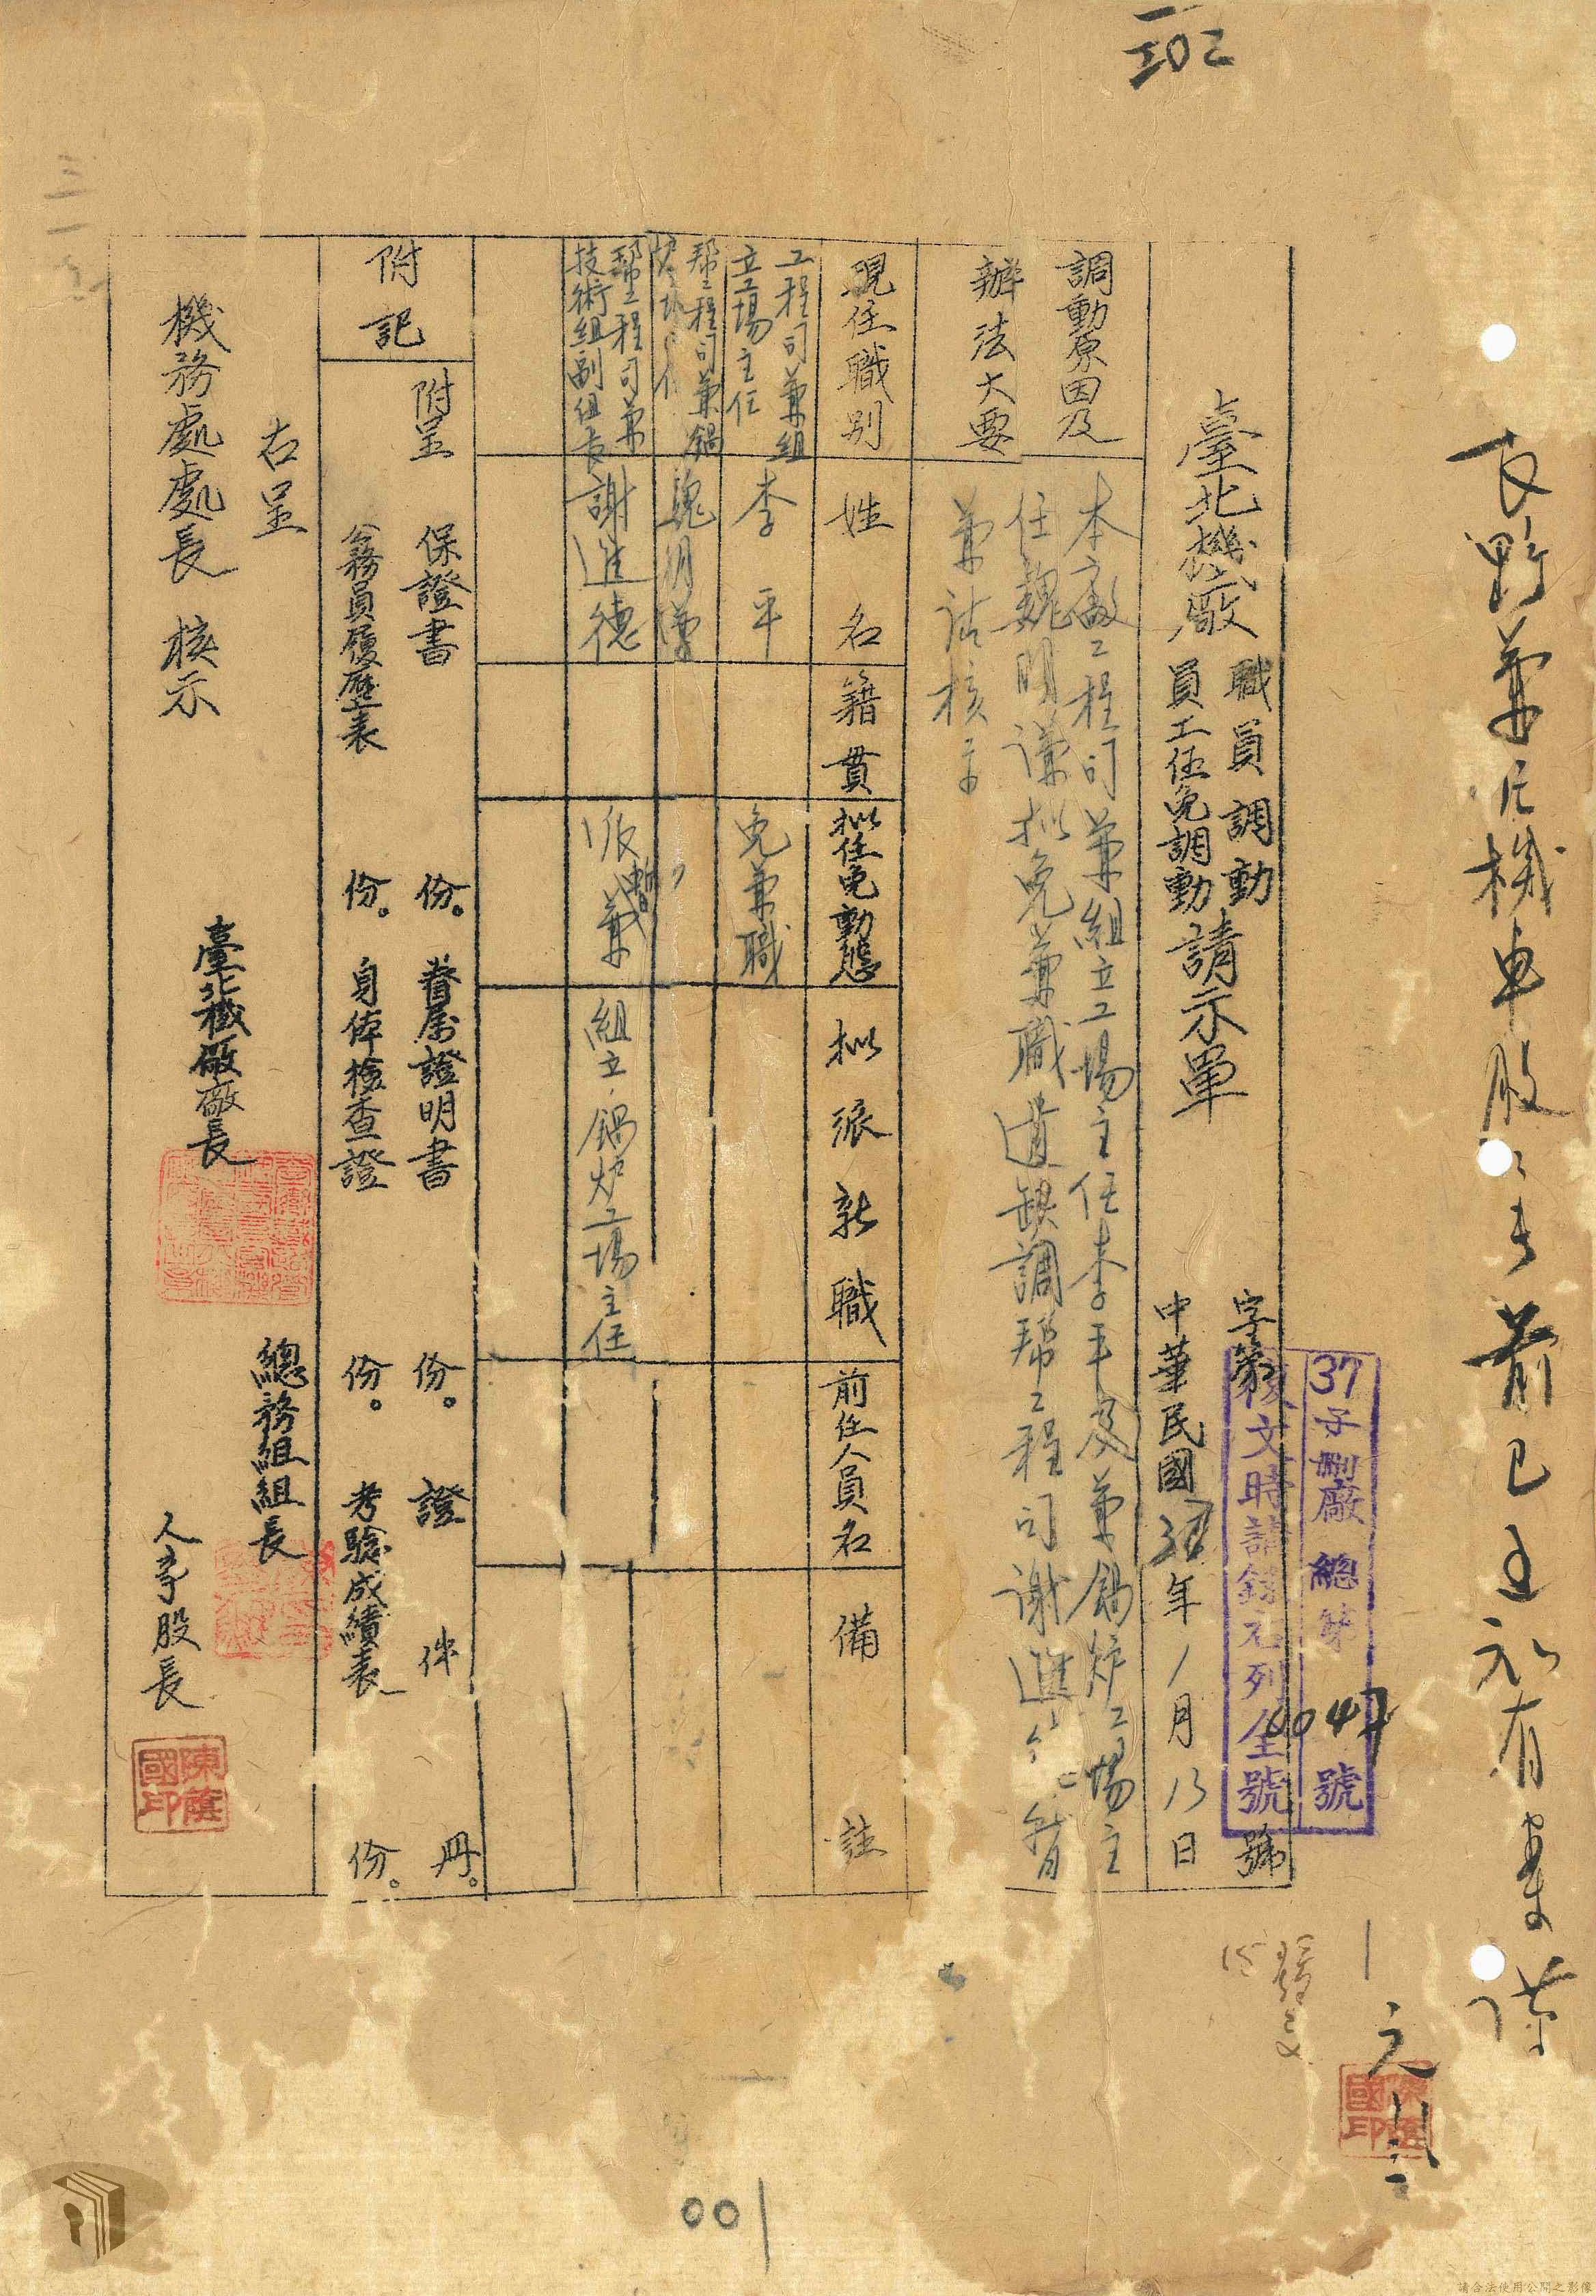 三〇二
兼任機車廠
前已
有案
臺北機廠
職員調動
員工任免調動
請示單
字第
號
37子刪廠總第0047號
復文時請錄右列全號
中華民國37年1月13日
調動原因及
辦法大要
本廠工程司兼組立工場主任李平及兼鍋炉工場主
任魏明謹拟免兼職遺缺調帮工程司謝進德暫
兼請核示
現任職別
姓名
籍貫
拟任免動態
拟派新職
前任人員名
備註
工程司兼組
立工場主任
李平
免兼職
帮工程司兼鍋
炉
魏明謹
〃
帮工程司兼
技術組副組長
謝進德
派暫兼
組立、鍋炉工場主任
附記
附呈
保證書
份。
眷屬證明書
份。
證件
冊。
公務員履歷表
份。
身体檢查證
份。
考驗成績表
份。
右呈
機務處處長 核示
臺北機廠廠長
總務組組長
人事股長
陳蔭國印
陳蔭國印
發文
001
請合法使用公開之影像